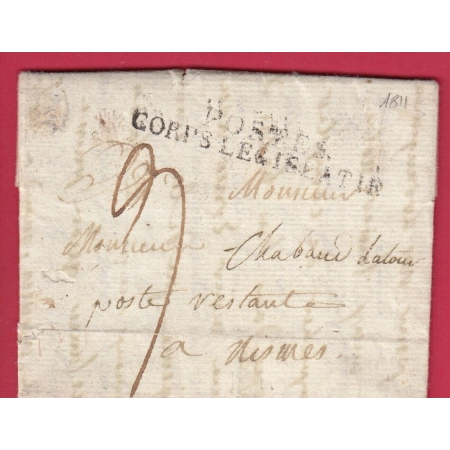 1811
POSTES
CORPS LEGISLATIF
9
Monsieur
Monsieur Chabaud Latour
poste restante
a Nismes